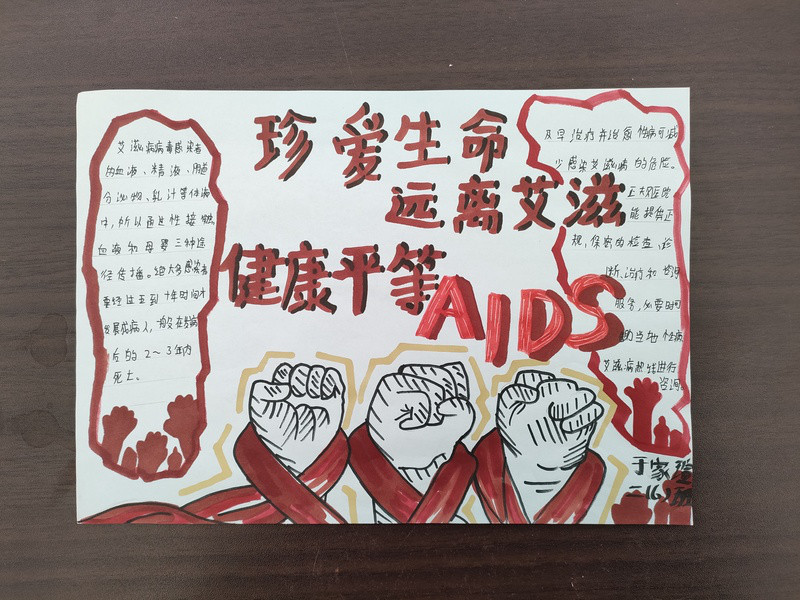 珍爱生命
远离艾滋
健康平等
AIDS
艾滋病病毒感染者
的血液、精液、阴道
分泌物、乳汁等体液
中,所以通过性接触
血液和母婴三种途
径传播。绝大多感染者
要经过五到十年时间才
发展成病人,一般在发病
后的2~3年内
死亡。
及早治疗并治愈性病可减
少感染艾滋病的危险。
正规医院
能提供正
规,保密的检查、诊
断、治疗和咨询
服务,必要时可
当地性病
艾滋病热线进行
咨询。
于家